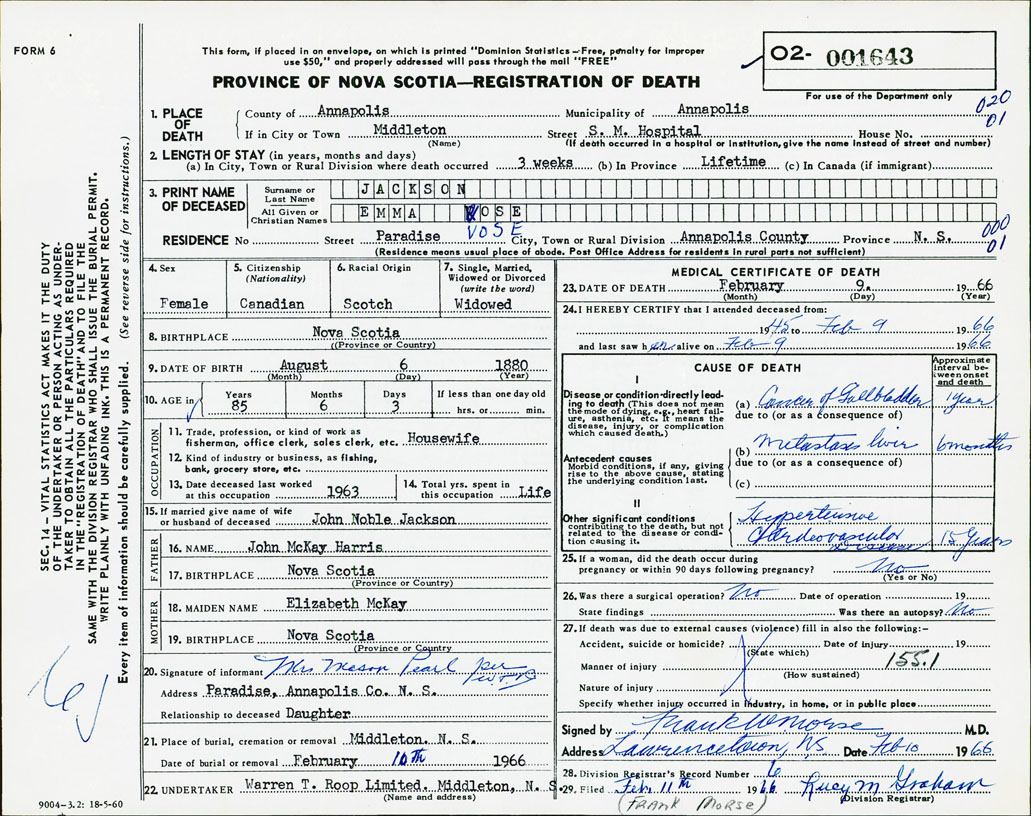 FORM 6
This form, if placed in an envelope, on which is printed "Dominion Statistics—Free, penalty for improper
use $50," and properly addressed will pass through the mail "FREE"
02- 001643
For use of the Department only
PROVINCE OF NOVA SCOTIA—REGISTRATION OF DEATH
020
01
1. PLACE OF DEATH
County of Annapolis Municipality of Annapolis
If in City or Town Middleton Street S. M. Hospital House No.
(Name) (If death occurred in a hospital or institution, give the name instead of street and number)
2. LENGTH OF STAY (in years, months and days)
(a) In City, Town or Rural Division where death occurred 3 weeks (b) In Province Lifetime (c) In Canada (if immigrant)
3. PRINT NAME OF DECEASED
Surname or Last Name JACKSON
All Given or Christian Names EMMA VOSE
VOSE
000
01
RESIDENCE No Street Paradise City, Town or Rural Division Annapolis County Province N. S.
(Residence means usual place of abode. Post Office Address for residents in rural parts not sufficient)
4. Sex
Female
5. Citizenship (Nationality)
Canadian
6. Racial Origin
Scotch
7. Single, Married, Widowed or Divorced (write the word)
Widowed
8. BIRTHPLACE Nova Scotia
(Province or Country)
9. DATE OF BIRTH August 6 1880
(Month) (Day) (Year)
10. AGE in Years 85 Months 6 Days 3 If less than one day old hrs. or min.
OCCUPATION
11. Trade, profession, or kind of work as
fisherman, office clerk, sales clerk, etc. Housewife
12. Kind of industry or business, as fishing,
bank, grocery store, etc.
13. Date deceased last worked
at this occupation 1963
14. Total yrs. spent in
this occupation Life
15. If married give name of wife
or husband of deceased John Noble Jackson
FATHER
16. NAME John McKay Harris
17. BIRTHPLACE Nova Scotia
(Province or Country)
MOTHER
18. MAIDEN NAME Elizabeth McKay
19. BIRTHPLACE Nova Scotia
(Province or Country)
20. Signature of informant Mrs Mason Pearl per
Address Paradise, Annapolis Co. N. S.
Relationship to deceased Daughter
21. Place of burial, cremation or removal Middleton. N. S.
Date of burial or removal February 10th 1966
22. UNDERTAKER Warren T. Roop Limited. Middleton, N S.
(Name and address)
MEDICAL CERTIFICATE OF DEATH
23. DATE OF DEATH February 9. 1966
(Month) (Day) (Year)
24. I HEREBY CERTIFY that I attended deceased from:
1945 to Feb 9 1966
and last saw her alive on Feb 9 1966
CAUSE OF DEATH
Approximate interval between onset and death
I
Disease or condition directly leading to death (This does not mean the mode of dying, e.g., heart failure, asthenia, etc. It means the disease, injury, or complication which caused death.)
(a) Cancer of Gallbladder 1 year
due to (or as a consequence of)
Antecedent causes
Morbid conditions, if any, giving rise to the above cause, stating the underlying condition last.
(b) Metastasis liver 6 months
due to (or as a consequence of)
(c)
II
Other significant conditions contributing to the death, but not related to the disease or condition causing it.
Hypertensive
Cardiovascular
Disease 15 years
25. If a woman, did the death occur during
pregnancy or within 90 days following pregnancy? No
(Yes or No)
26. Was there a surgical operation? No Date of operation 19
State findings Was there an autopsy? No
27. If death was due to external causes (violence) fill in also the following:—
Accident, suicide or homicide? Date of injury 19
(State which)
155.1
Manner of injury
(How sustained)
Nature of injury
Specify whether injury occurred in industry, in home, or in public place
Signed by Frank W Morse M.D.
Address Lawrencetown, NS Date Feb 10 1966
28. Division Registrar's Record Number 6
29. Filed Feb. 11th 1966 Lucy M Graham
(FRANK MORSE) (Division Registrar)
SEC. 14 – VITAL STATISTICS ACT MAKES IT THE DUTY
OF THE UNDERTAKER OR PERSON ACTING AS UNDER-
TAKER TO OBTAIN ALL THE PARTICULARS REQUIRED
IN THE "REGISTRATION OF DEATH" AND TO FILE THE
SAME WITH THE DIVISION REGISTRAR WHO SHALL ISSUE THE BURIAL PERMIT.
WRITE PLAINLY WITH UNFADING INK. THIS IS A PERMANENT RECORD.
Every item of information should be carefully supplied. (See reverse side for instructions.)
9004–3.2: 18-5-60